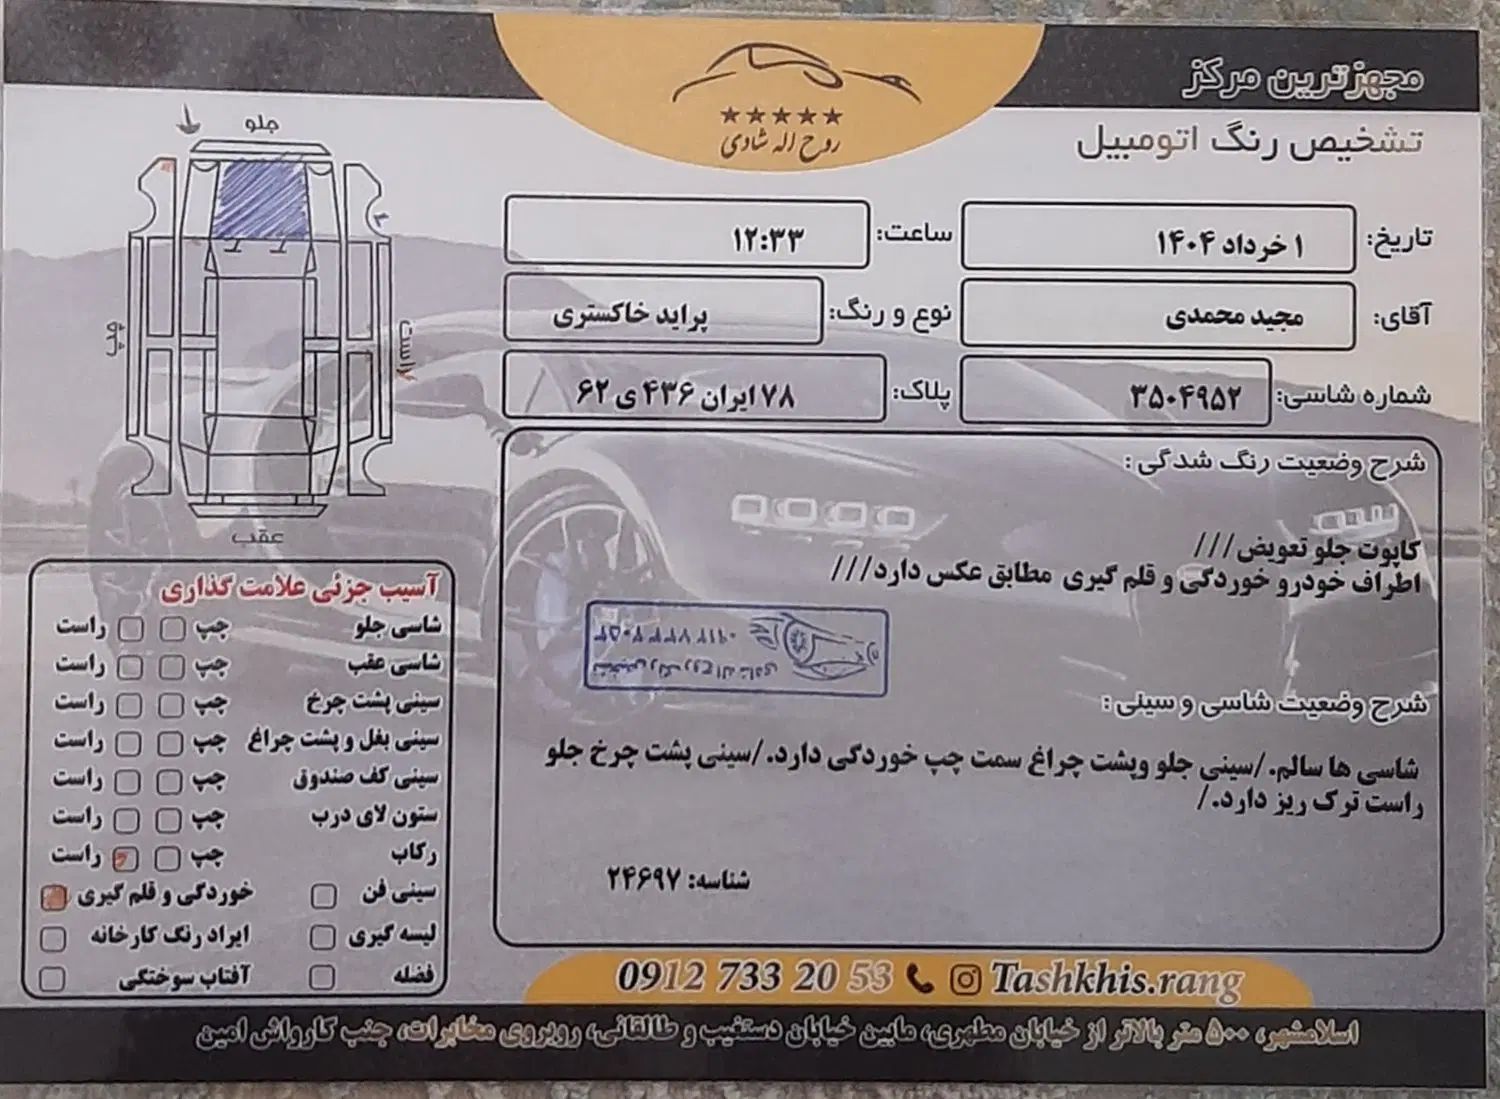 مجهزترین مرکز
تشخیص رنگ اتومبیل
روح اله شادی
تاریخ: ۱ خرداد ۱۴۰۴
ساعت: ۱۲:۳۳
آقای: مجید محمدی
نوع و رنگ: پراید خاکستری
شماره شاسی: ۳۵۰۴۹۵۲
پلاک: ۷۸ ایران ۴۳۶ ی ۶۲
شرح وضعیت رنگ شدگی:
کاپوت جلو تعویض///
اطراف خودرو خوردگی و قلم گیری مطابق عکس دارد///
تشخیص رنگ روح اله شادی
۰۹۱۲۷۳۳۲۰۵۳
شرح وضعیت شاسی و سینی:
شاسی ها سالم./سینی جلو وپشت چراغ سمت چپ خوردگی دارد./سینی پشت چرخ جلو
راست ترک ریز دارد./
شناسه: ۲۴۶۹۷
جلو
چپ
راست
عقب
آسیب جزئی علامت گذاری
شاسی جلو چپ راست
شاسی عقب چپ راست
سینی پشت چرخ چپ راست
سینی بغل و پشت چراغ چپ راست
سینی کف صندوق چپ راست
ستون لای درب چپ راست
رکاب چپ راست
سینی فن خوردگی و قلم گیری
لیسه گیری ایراد رنگ کارخانه
فضله آفتاب سوختگی
0912 733 20 53 Tashkhis.rang
اسلامشهر، ۵۰۰ متر بالاتر از خیابان مطهری، مابین خیابان دستغیب و طالقانی، روبروی مخابرات، جنب کارواش امین